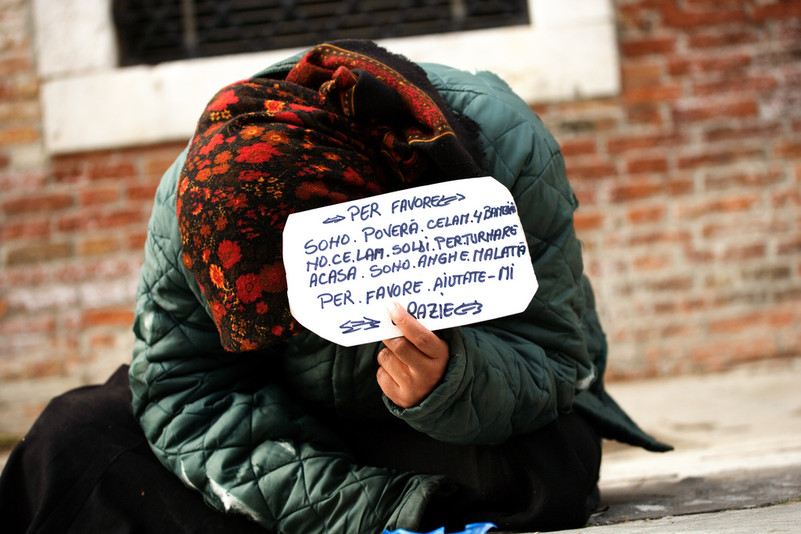 PER FAVORE
SONO. POVERĂ. CELAM. 4 BAMBINI
NO. CE. LAM. SOLDI. PER. TURNARE
ACASA. SONO. ANGHE. MALATĂ
PER. FAVORE. AIUTATE-MI
RAZIE